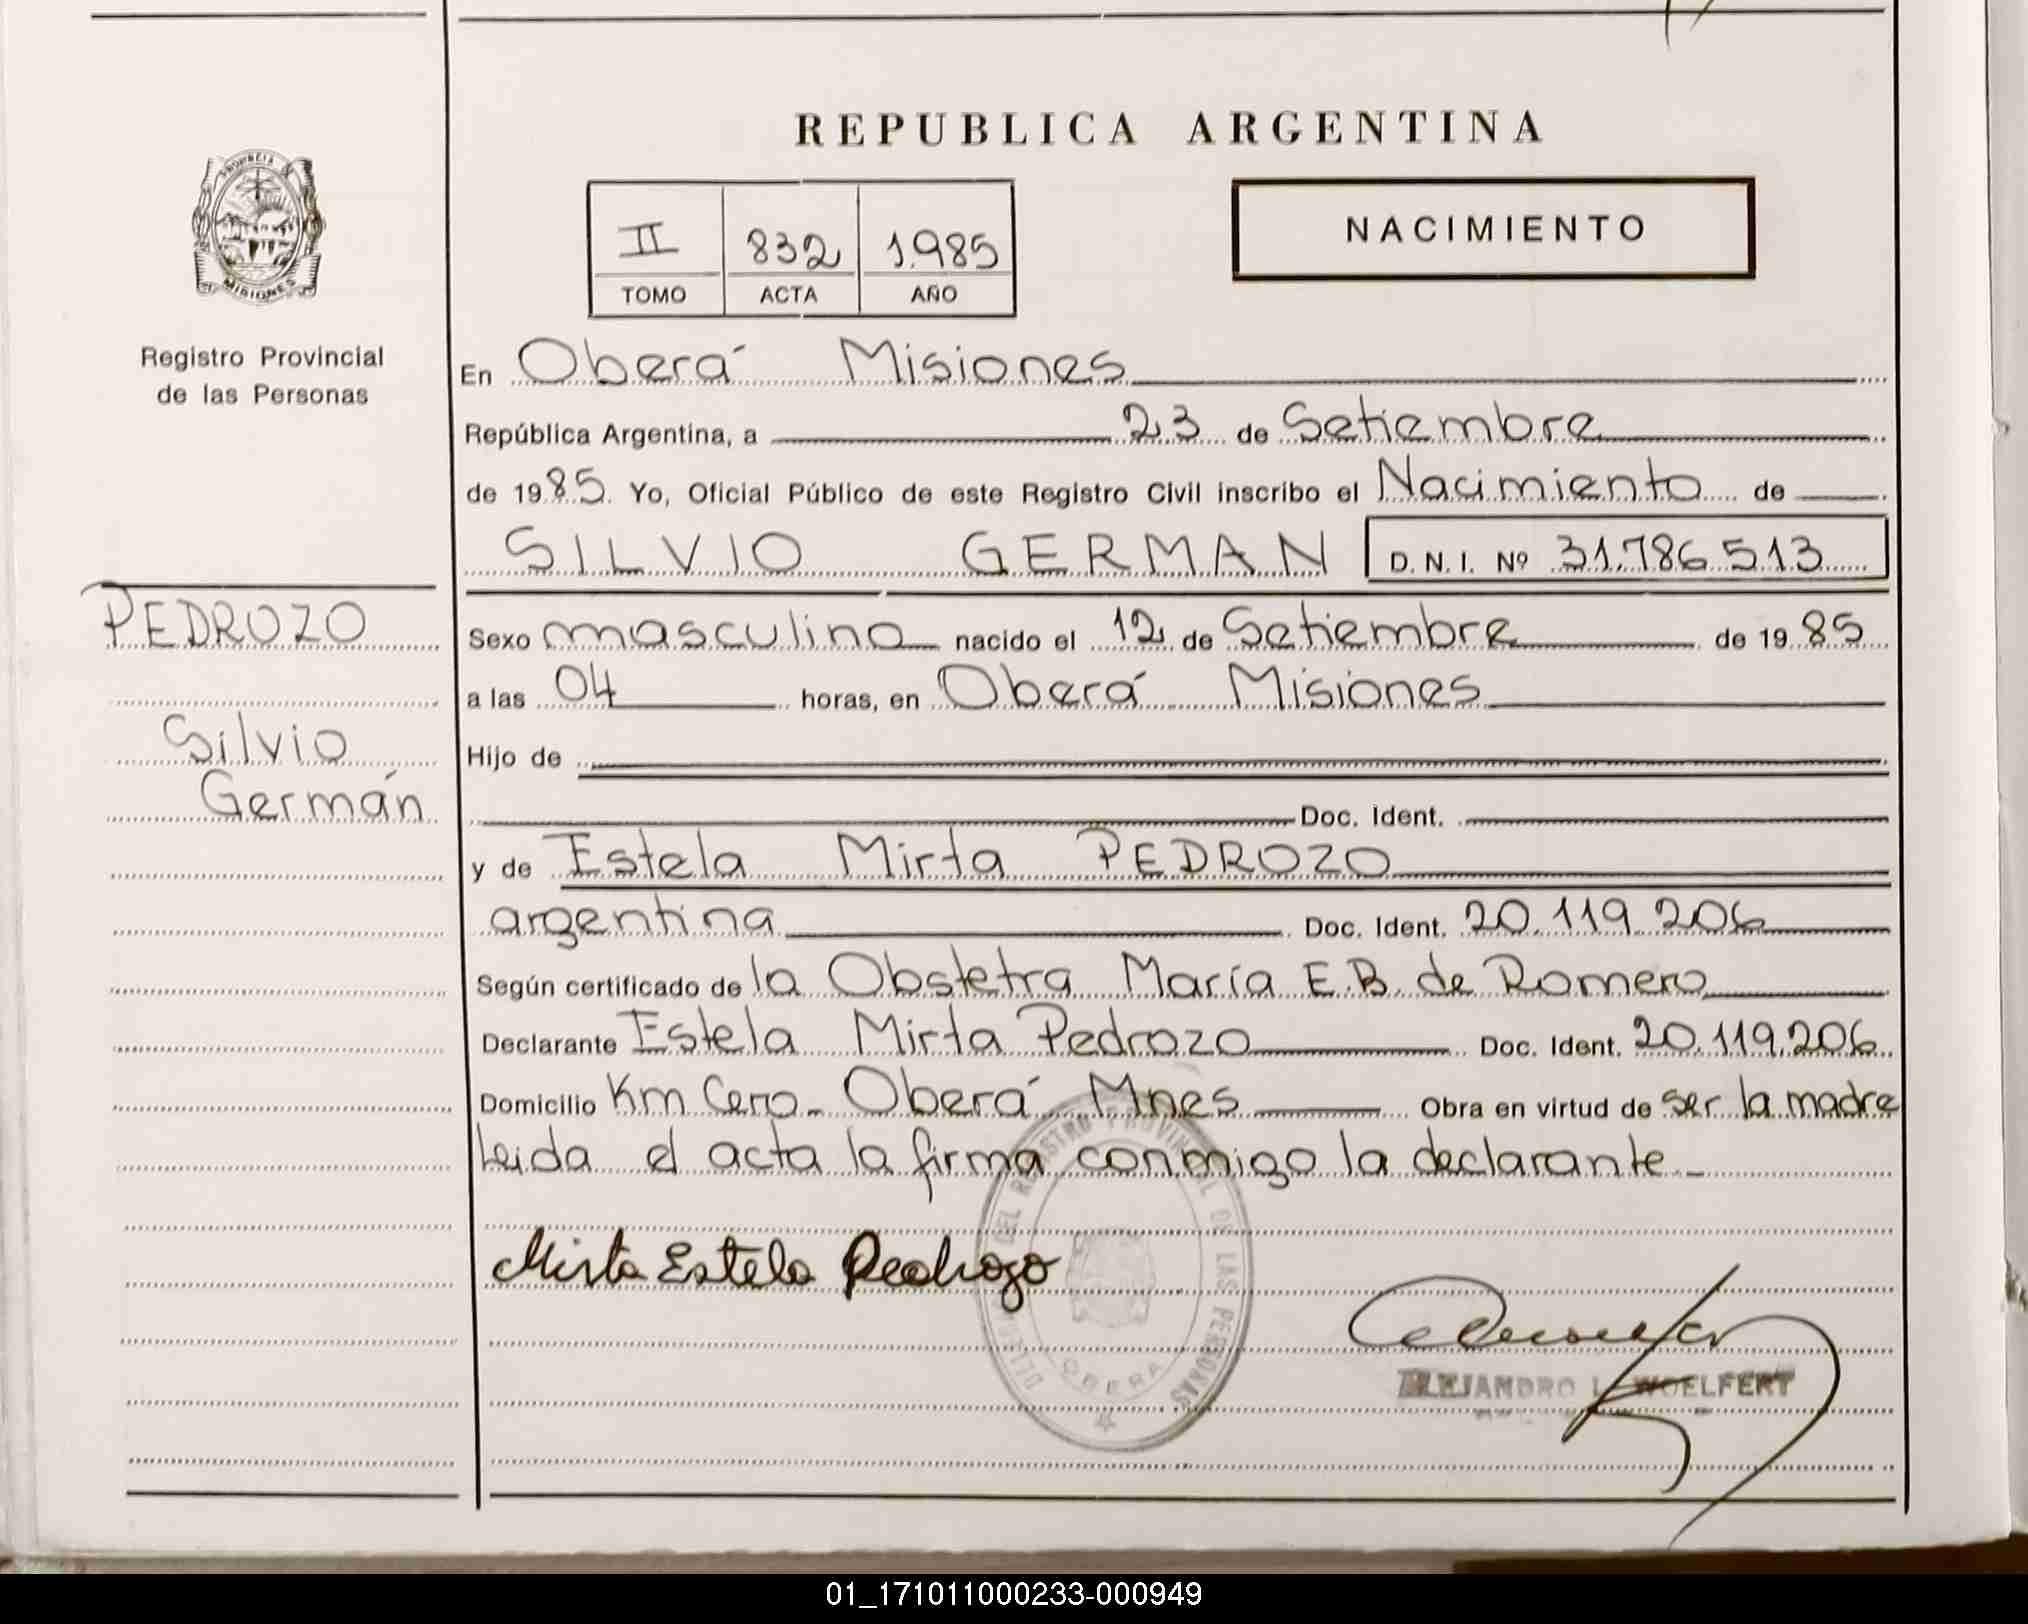 REPUBLICA ARGENTINA
PROVINCIA DE
MISIONES
Registro Provincial
de las Personas
NACIMIENTO
II 832 1.985
TOMO ACTA AÑO
En Oberá Misiones
República Argentina, a 23 de Setiembre
de 1985. Yo, Oficial Público de este Registro Civil inscribo el Nacimiento de
SILVIO GERMAN D. N. I. Nº 31.786.513
PEDROZO
Silvio
Germán
Sexo masculino nacido el 12 de Setiembre de 1985
a las 04 horas, en Oberá Misiones
Hijo de
Doc. Ident.
y de Estela Mirta PEDROZO
argentina Doc. Ident. 20.119.206
Según certificado de la Obstetra María E.B. de Romero
Declarante Estela Mirta Pedrozo Doc. Ident. 20.119.206
Domicilio Km Cero - Oberá Mnes Obra en virtud de ser la madre
Leida el acta la firma conmigo la declarante -
Mirta Estela Pedrozo
DEL REGISTRO PROVINCIAL DE LAS PERSONAS
OBERA
ALEJANDRO L. WOELFERT
01_171011000233-000949